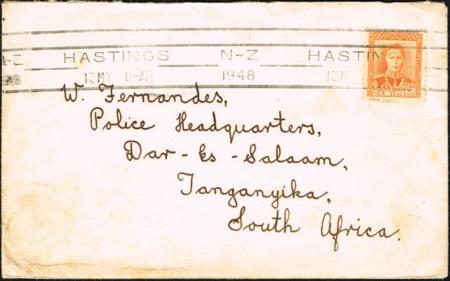 HASTINGS N-Z HASTIN
13MY 11-AM 1948 13M
W. Fernandes,
Police Headquarters,
Dar-Es-Salaam,
Tanganyika,
South Africa.
NEW ZEALAND